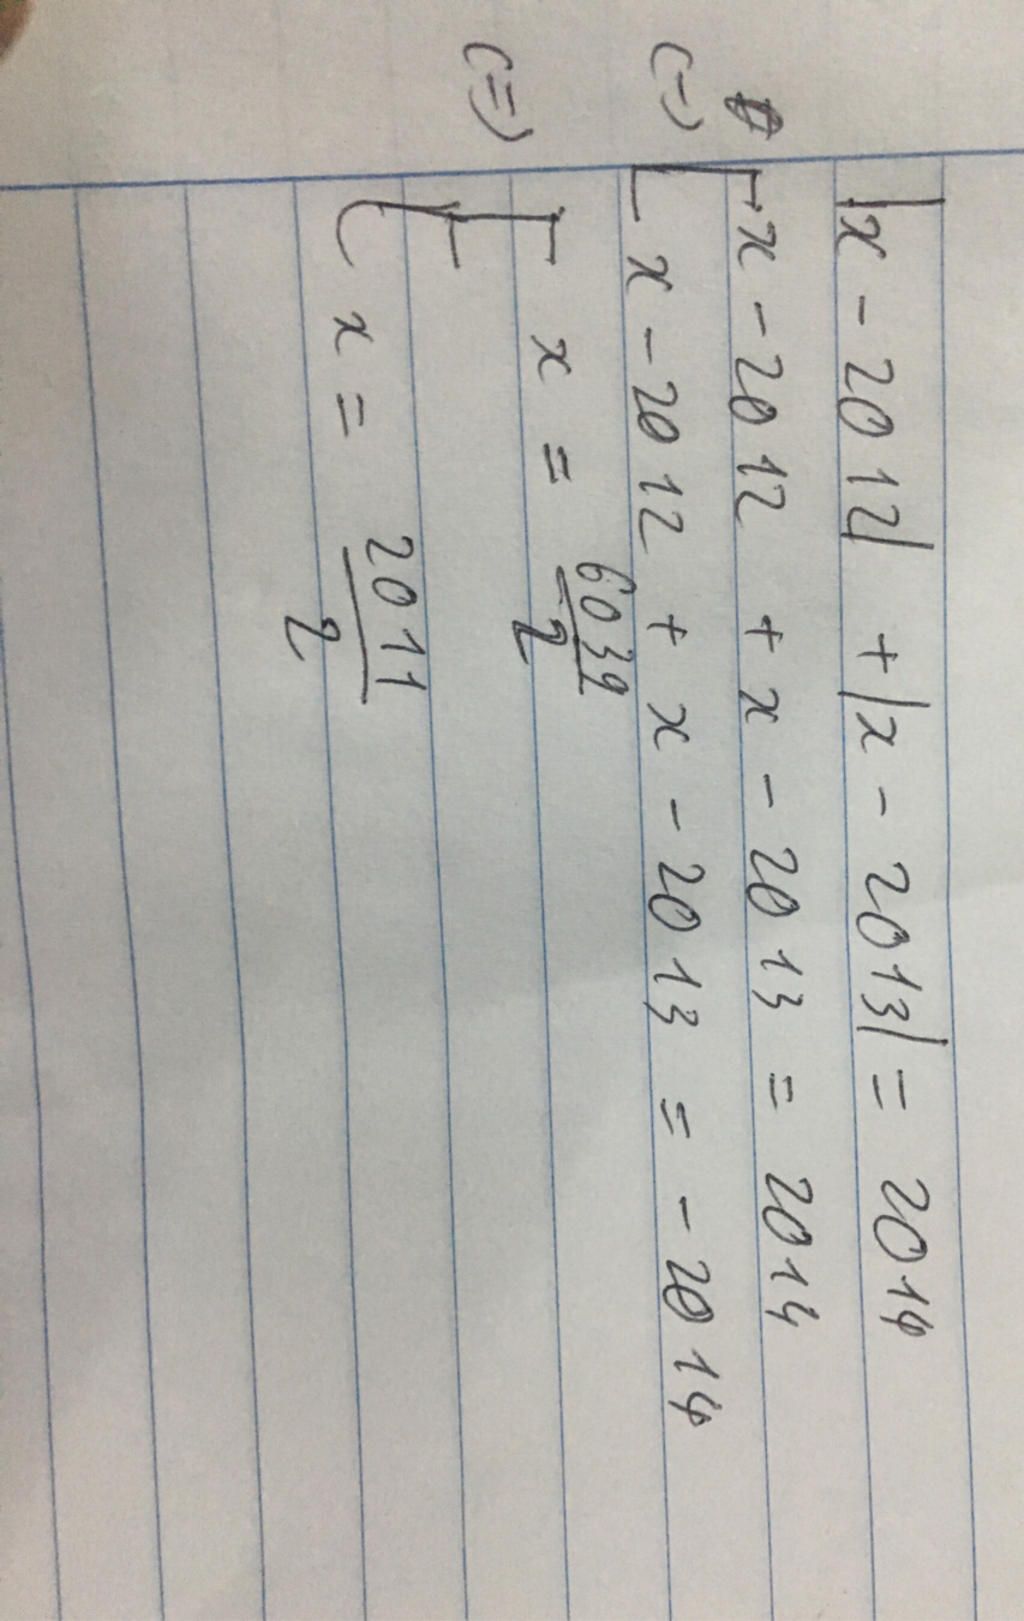 |x - 2012| + |x - 2013| = 2014
(=) [ x - 2012 + x - 2013 = 2014
[ x - 2012 + x - 2013 = - 2014
(=) [ x = 6039/2
[ x = 2011/2